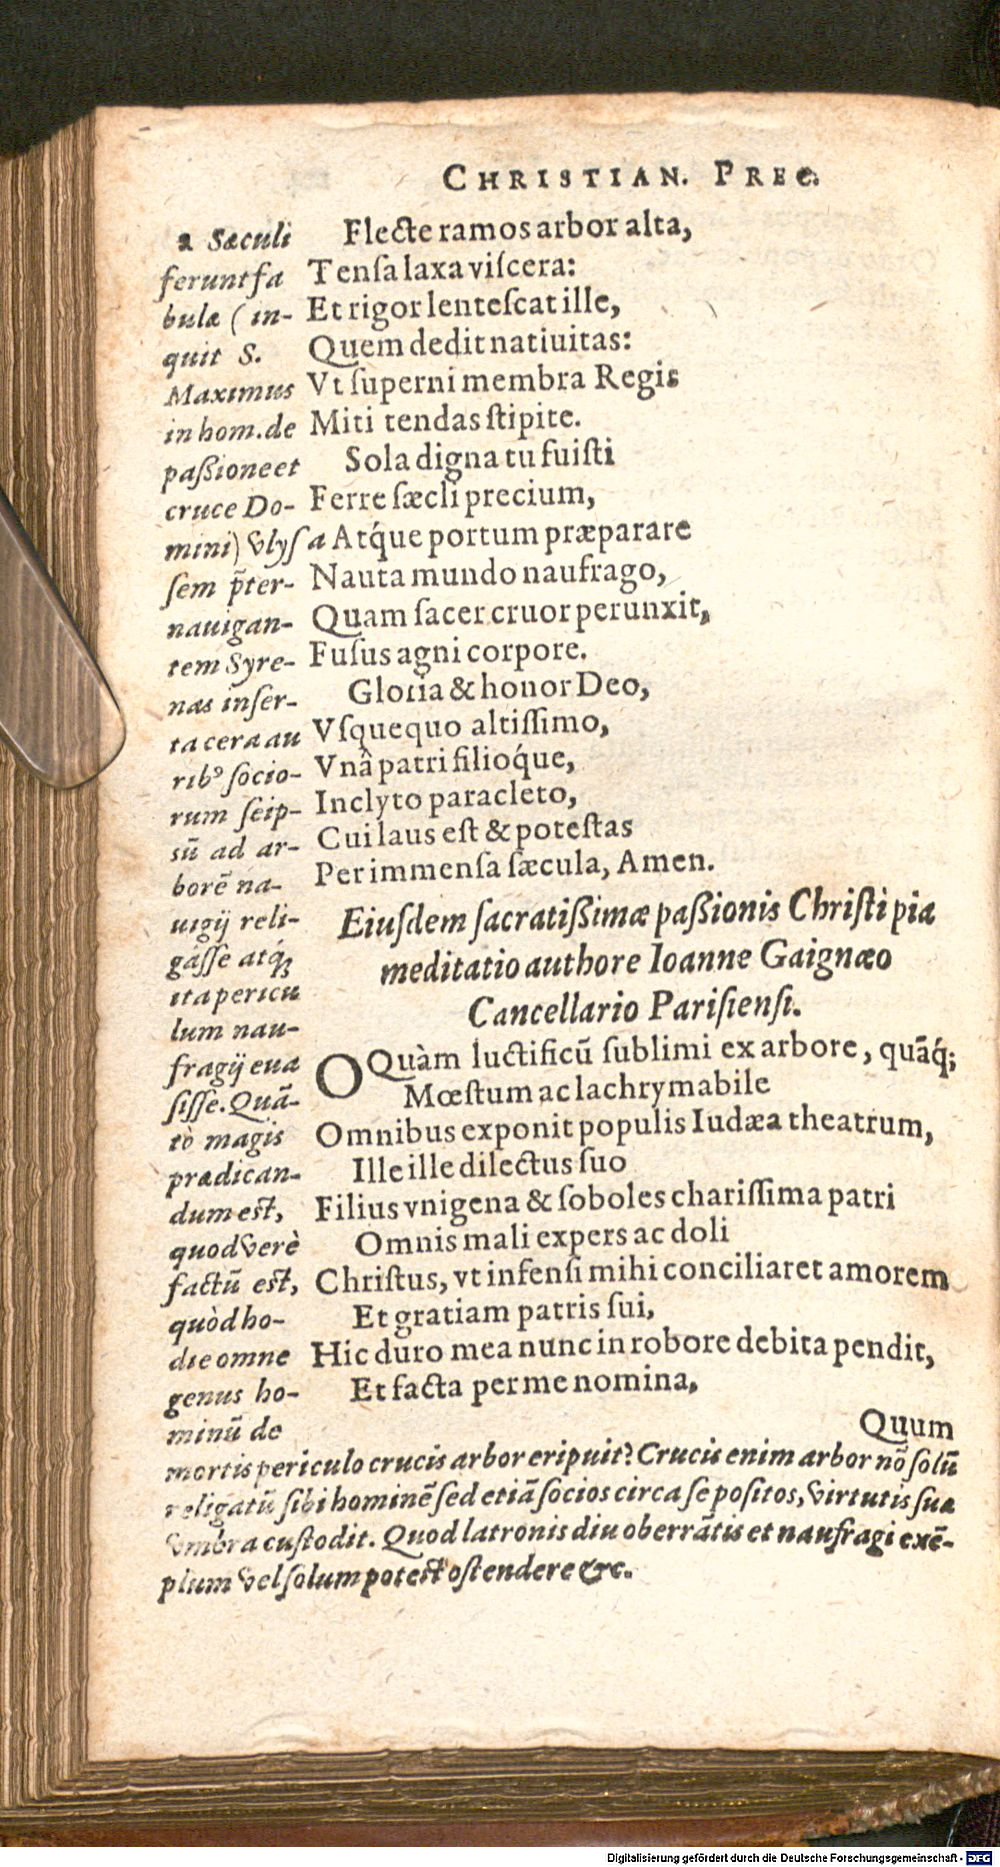 CHRISTIAN. PREC.
Flecte ramos arbor alta,
Tensa laxa viscera:
Et rigor lentescat ille,
Quem dedit natiuitas:
Vt superni membra Regis
Miti tendas stipite.
Sola digna tu fuisti
Ferre sæcli precium,
a Atq́ue portum præparare
Nauta mundo naufrago,
Quam sacer cruor perunxit,
Fusus agni corpore.
Gloria & honor Deo,
Vsquequo altissimo,
Vnâ patri filioq́ue,
Inclyto paracleto,
Cui laus est & potestas
Per immensa sæcula, Amen.
Eiusdem sacratißimæ paßionis Christi pia
meditatio authore Ioanne Gaignæo
Cancellario Parisiensi.
O Quàm luctificũ sublimi ex arbore, quãq́;
Mœstum ac lachrymabile
Omnibus exponit populis Iudæa theatrum,
Ille ille dilectus suo
Filius vnigena & soboles charissima patri
Omnis mali expers ac doli
Christus, vt infensi mihi conciliaret amorem
Et gratiam patris sui,
Hic duro mea nunc in robore debita pendit,
Et facta per me nomina,
Quum
a Sæculi
ferunt fa
bulæ (in-
quit S.
Maximus
in hom. de
paßione et
cruce Do-
mini) vlys
sem p̃ter-
nauigan-
tem Syre-
nas inser-
ta cera au
ribꝰ socio-
rum seip-
sũ ad ar-
borẽ na-
uigij reli-
gásse atq́;
ita pericu
lum nau-
fragij eua
sisse. Quã-
tò magis
prædican-
dum est,
quod verè
factũ est,
quòd ho-
die omne
genus ho-
minũ de
mortis periculo crucis arbor eripuit? Crucis enim arbor nõ solũ
religatũ sibi hominẽ sed etiã socios circa se positos, virtutis suæ
vmbra custodit. Quod latronis diu oberrãtis et naufragi exẽ-
plum vel solum potest ostendere &c.
Digitalisierung gefördert durch die Deutsche Forschungsgemeinschaft - DFG